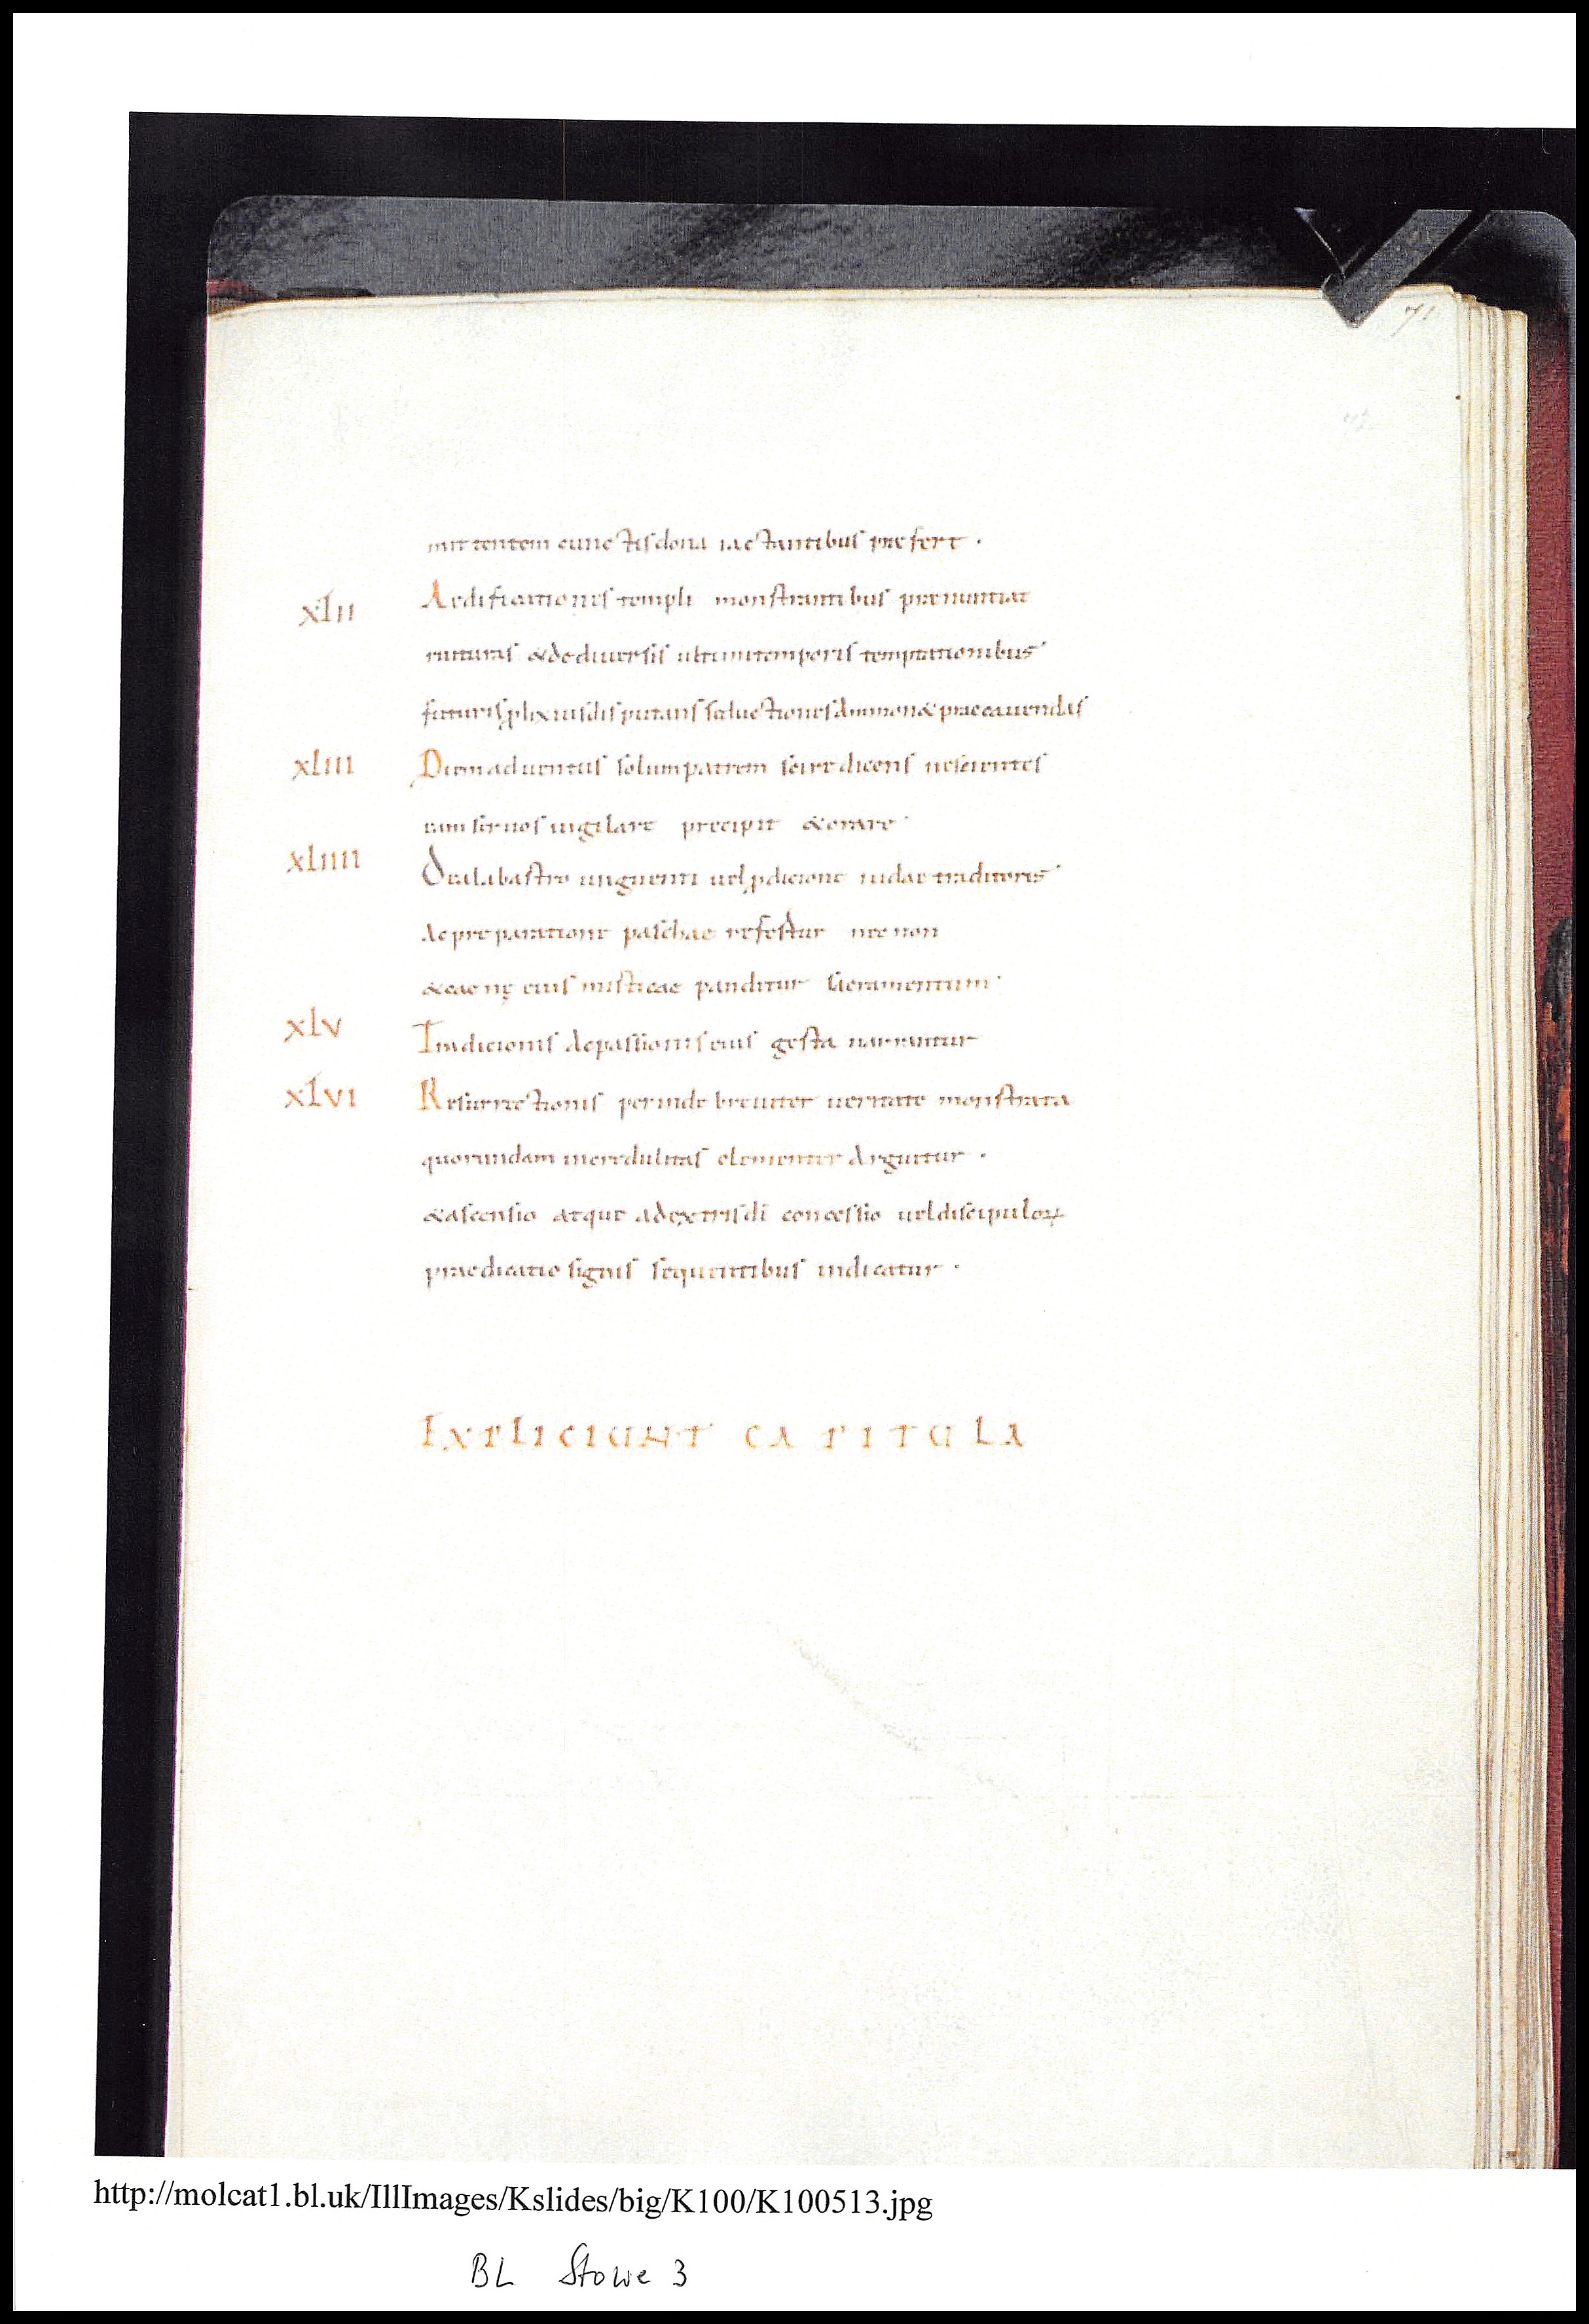 71
72
mittentem cunctis dona iactantibus praefert .
xlii Aedificationes templi monstrantibus praenuntiat
ruituras & de diuersis ultimi temporis temptationibus
futuris plixius disputans seductiones ammon& praecauendas
xliii Diem aduentus solum patrem scire dicens nescientes
tam seruos uigilare precipit & orare
xliiii De alabastro unguenti uel pdicione iudae traditoris
Ac preparatione paschae refertur nec non
& caenę eius misticae panditur sacramentum
xlv Tradicionis Ac passionis eius gesta narrantur
xlvi Resurrectionis perinde breuiter ueritate monstrata
quorundam incredulitas clementer Arguitur .
& ascensio atque a dextris di concessio uel discipuloꝝ
praedicatio signis sequentibus indicatur .
EXPLICIUNT CAPITULA
http://molcat1.bl.uk/IllImages/Kslides/big/K100/K100513.jpg
BL Stowe 3